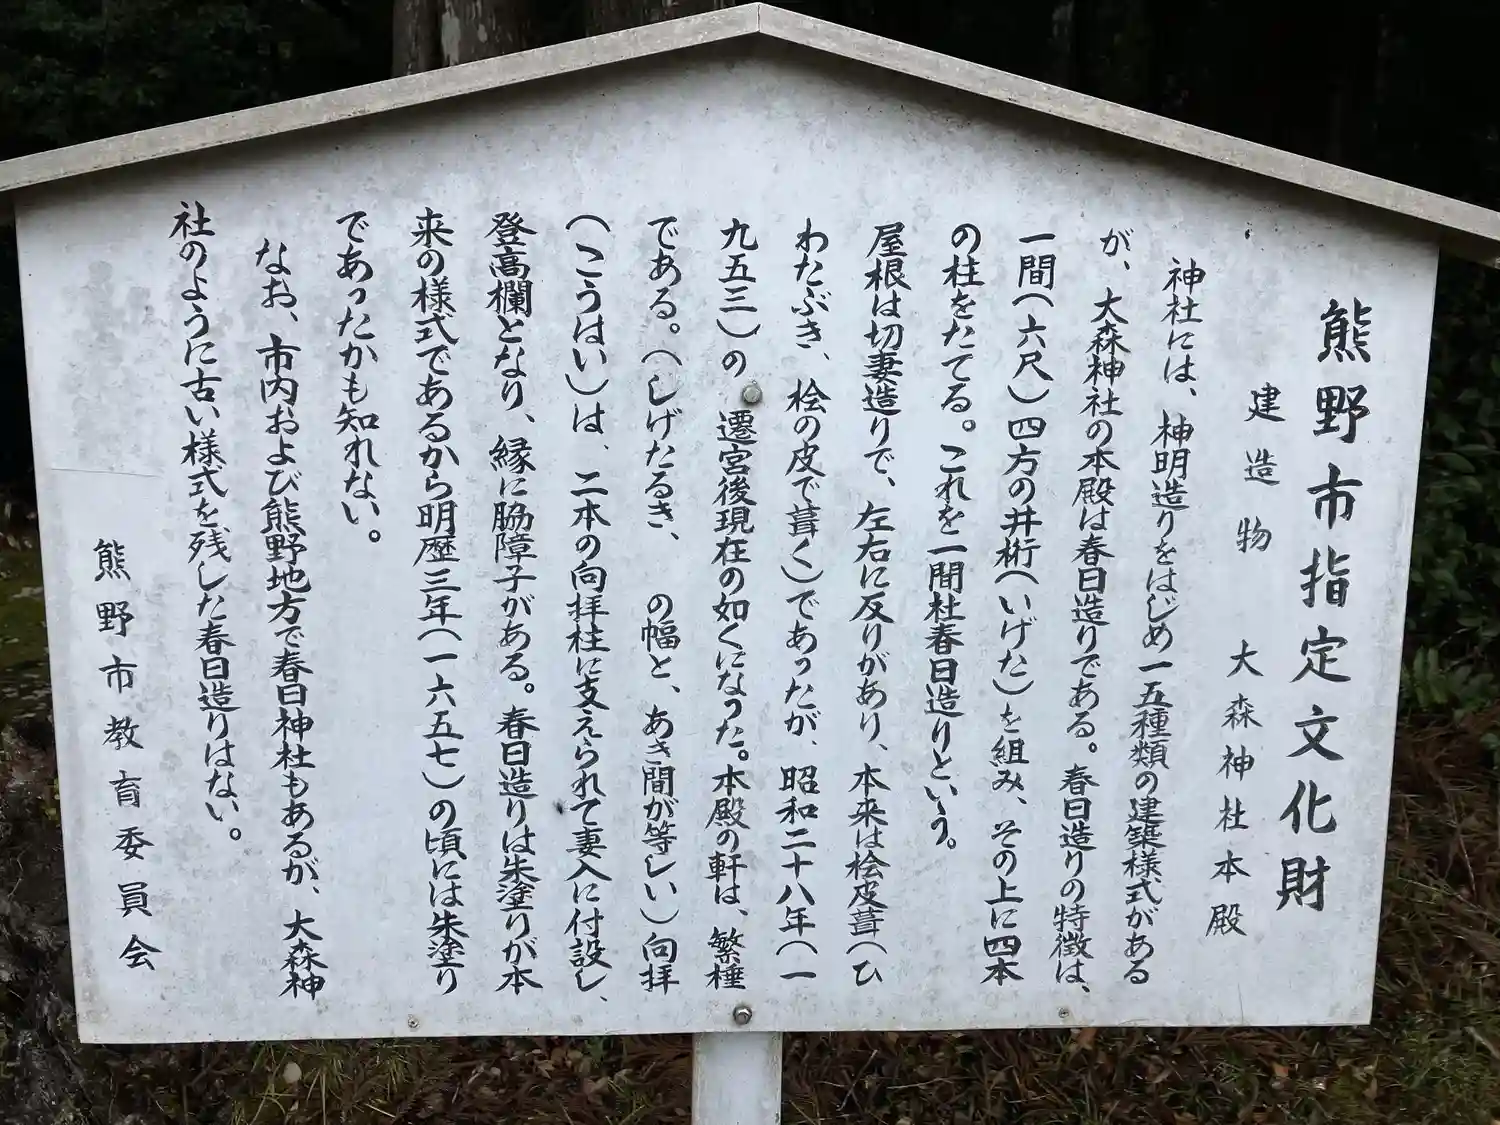 熊野市指定文化財
建造物　大森神社本殿
神社には、神明造りをはじめ一五種類の建築様式がある
が、大森神社の本殿は春日造りである。春日造りの特徴は、
一間（六尺）四方の井桁（いげた）を組み、その上に四本
の柱をたてる。これを一間社春日造りという。
屋根は切妻造りで、左右に反りがあり、本来は桧皮葺（ひ
わたぶき、桧の皮で葺く）であったが、昭和二十八年（一
九五三）の　遷宮後現在の如くになった。本殿の軒は、繁棰
である。（しげたるき、　の幅と、あき間が等しい）向拝
（こうはい）は、二本の向拝柱に支えられて妻入に付設し、
登高欄となり、縁に脇障子がある。春日造りは朱塗りが本
来の様式であるから明歴三年（一六五七）の頃には朱塗り
であったかも知れない。
なお、市内および熊野地方で春日神社もあるが、大森神
社のように古い様式を残した春日造りはない。
熊野市教育委員会